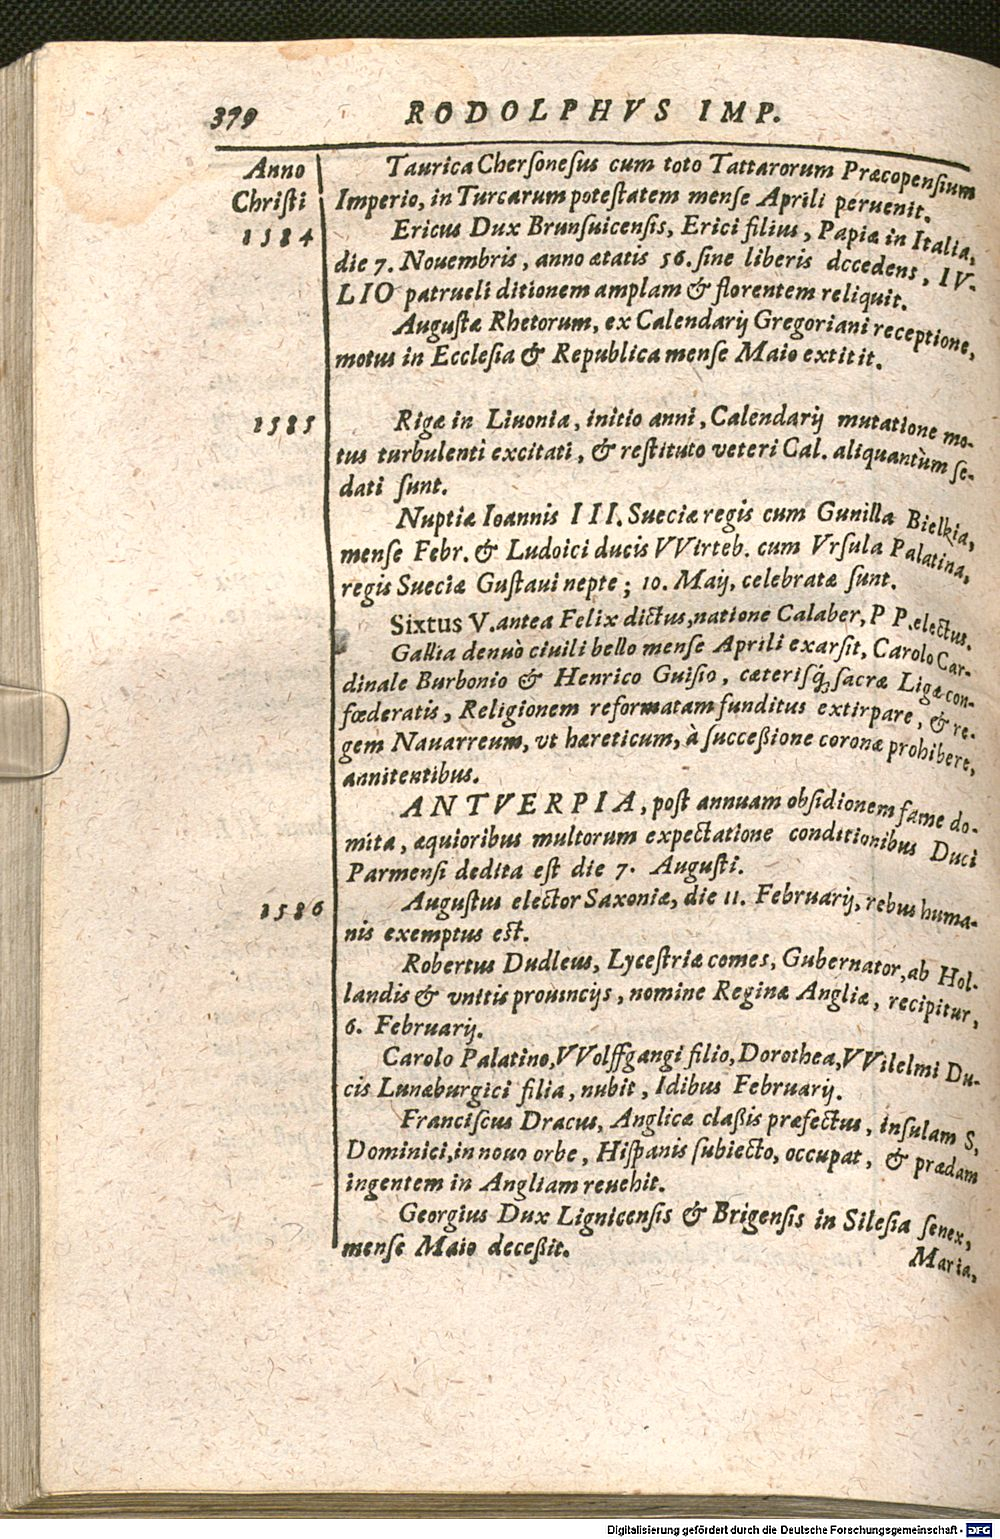 379 RODOLPHVS IMP.
Anno
Christi
1584
Taurica Chersonesus cum toto Tattarorum Præcopensium
Imperio, in Turcarum potestatem mense Aprili peruenit.
Ericus Dux Brunsuicensis, Erici filius, Papiæ in Italia,
die 7. Nouembris, anno ætatis 56. sine liberis dccedens, IV-
LIO patrueli ditionem amplam & florentem reliquit.
Augustæ Rhetorum, ex Calendarij Gregoriani receptione,
motus in Ecclesia & Republica mense Maio extitit.
1585
Rigæ in Liuonia, initio anni, Calendarij mutatione mo-
tus turbulenti excitati, & restituto veteri Cal. aliquantùm se-
dati sunt.
Nuptiæ Ioannis III. Sueciæ regis cum Gunilla Bielkia,
mense Febr. & Ludoici ducis VVirteb. cum Vrsula Palatina,
regis Sueciæ Gustaui nepte; 10. Maij, celebratæ sunt.
Sixtus V. antea Felix dictus, natione Calaber, P P. electus.
Gallia denuò ciuili bello mense Aprili exarsit, Carolo Car-
dinale Burbonio & Henrico Guisio, cæterisq́; sacræ Ligæ con-
fœderatis, Religionem reformatam funditus extirpare, & re-
gem Nauarreum, vt hæreticum, à succeßione coronæ prohibere,
annitentibus.
ANTVERPIA, post annuam obsidionem fame do-
mita, æquioribus multorum expectatione conditionibus Duci
Parmensi dedita est die 7. Augusti.
1586
Augustus elector Saxoniæ, die 11. Februarij, rebus huma-
nis exemptus est.
Robertus Dudleus, Lycestriæ comes, Gubernator, ab Hol-
landis & vnitis prouincijs, nomine Reginæ Angliæ, recipitur,
6. Februarij.
Carolo Palatino, VVolffgangi filio, Dorothea, VVilelmi Du-
cis Lunæburgici filia, nubit, Idibus Februarij.
Franciscus Dracus, Anglicæ claßis præfectus, insulam S,
Dominici, in nouo orbe, Hispanis subiecto, occupat, & prædam
ingentem in Angliam reuehit.
Georgius Dux Lignicensis & Brigensis in Silesia senex,
mense Maio deceßit.
Maria,
Digitalisierung gefördert durch die Deutsche Forschungsgemeinschaft - DFG